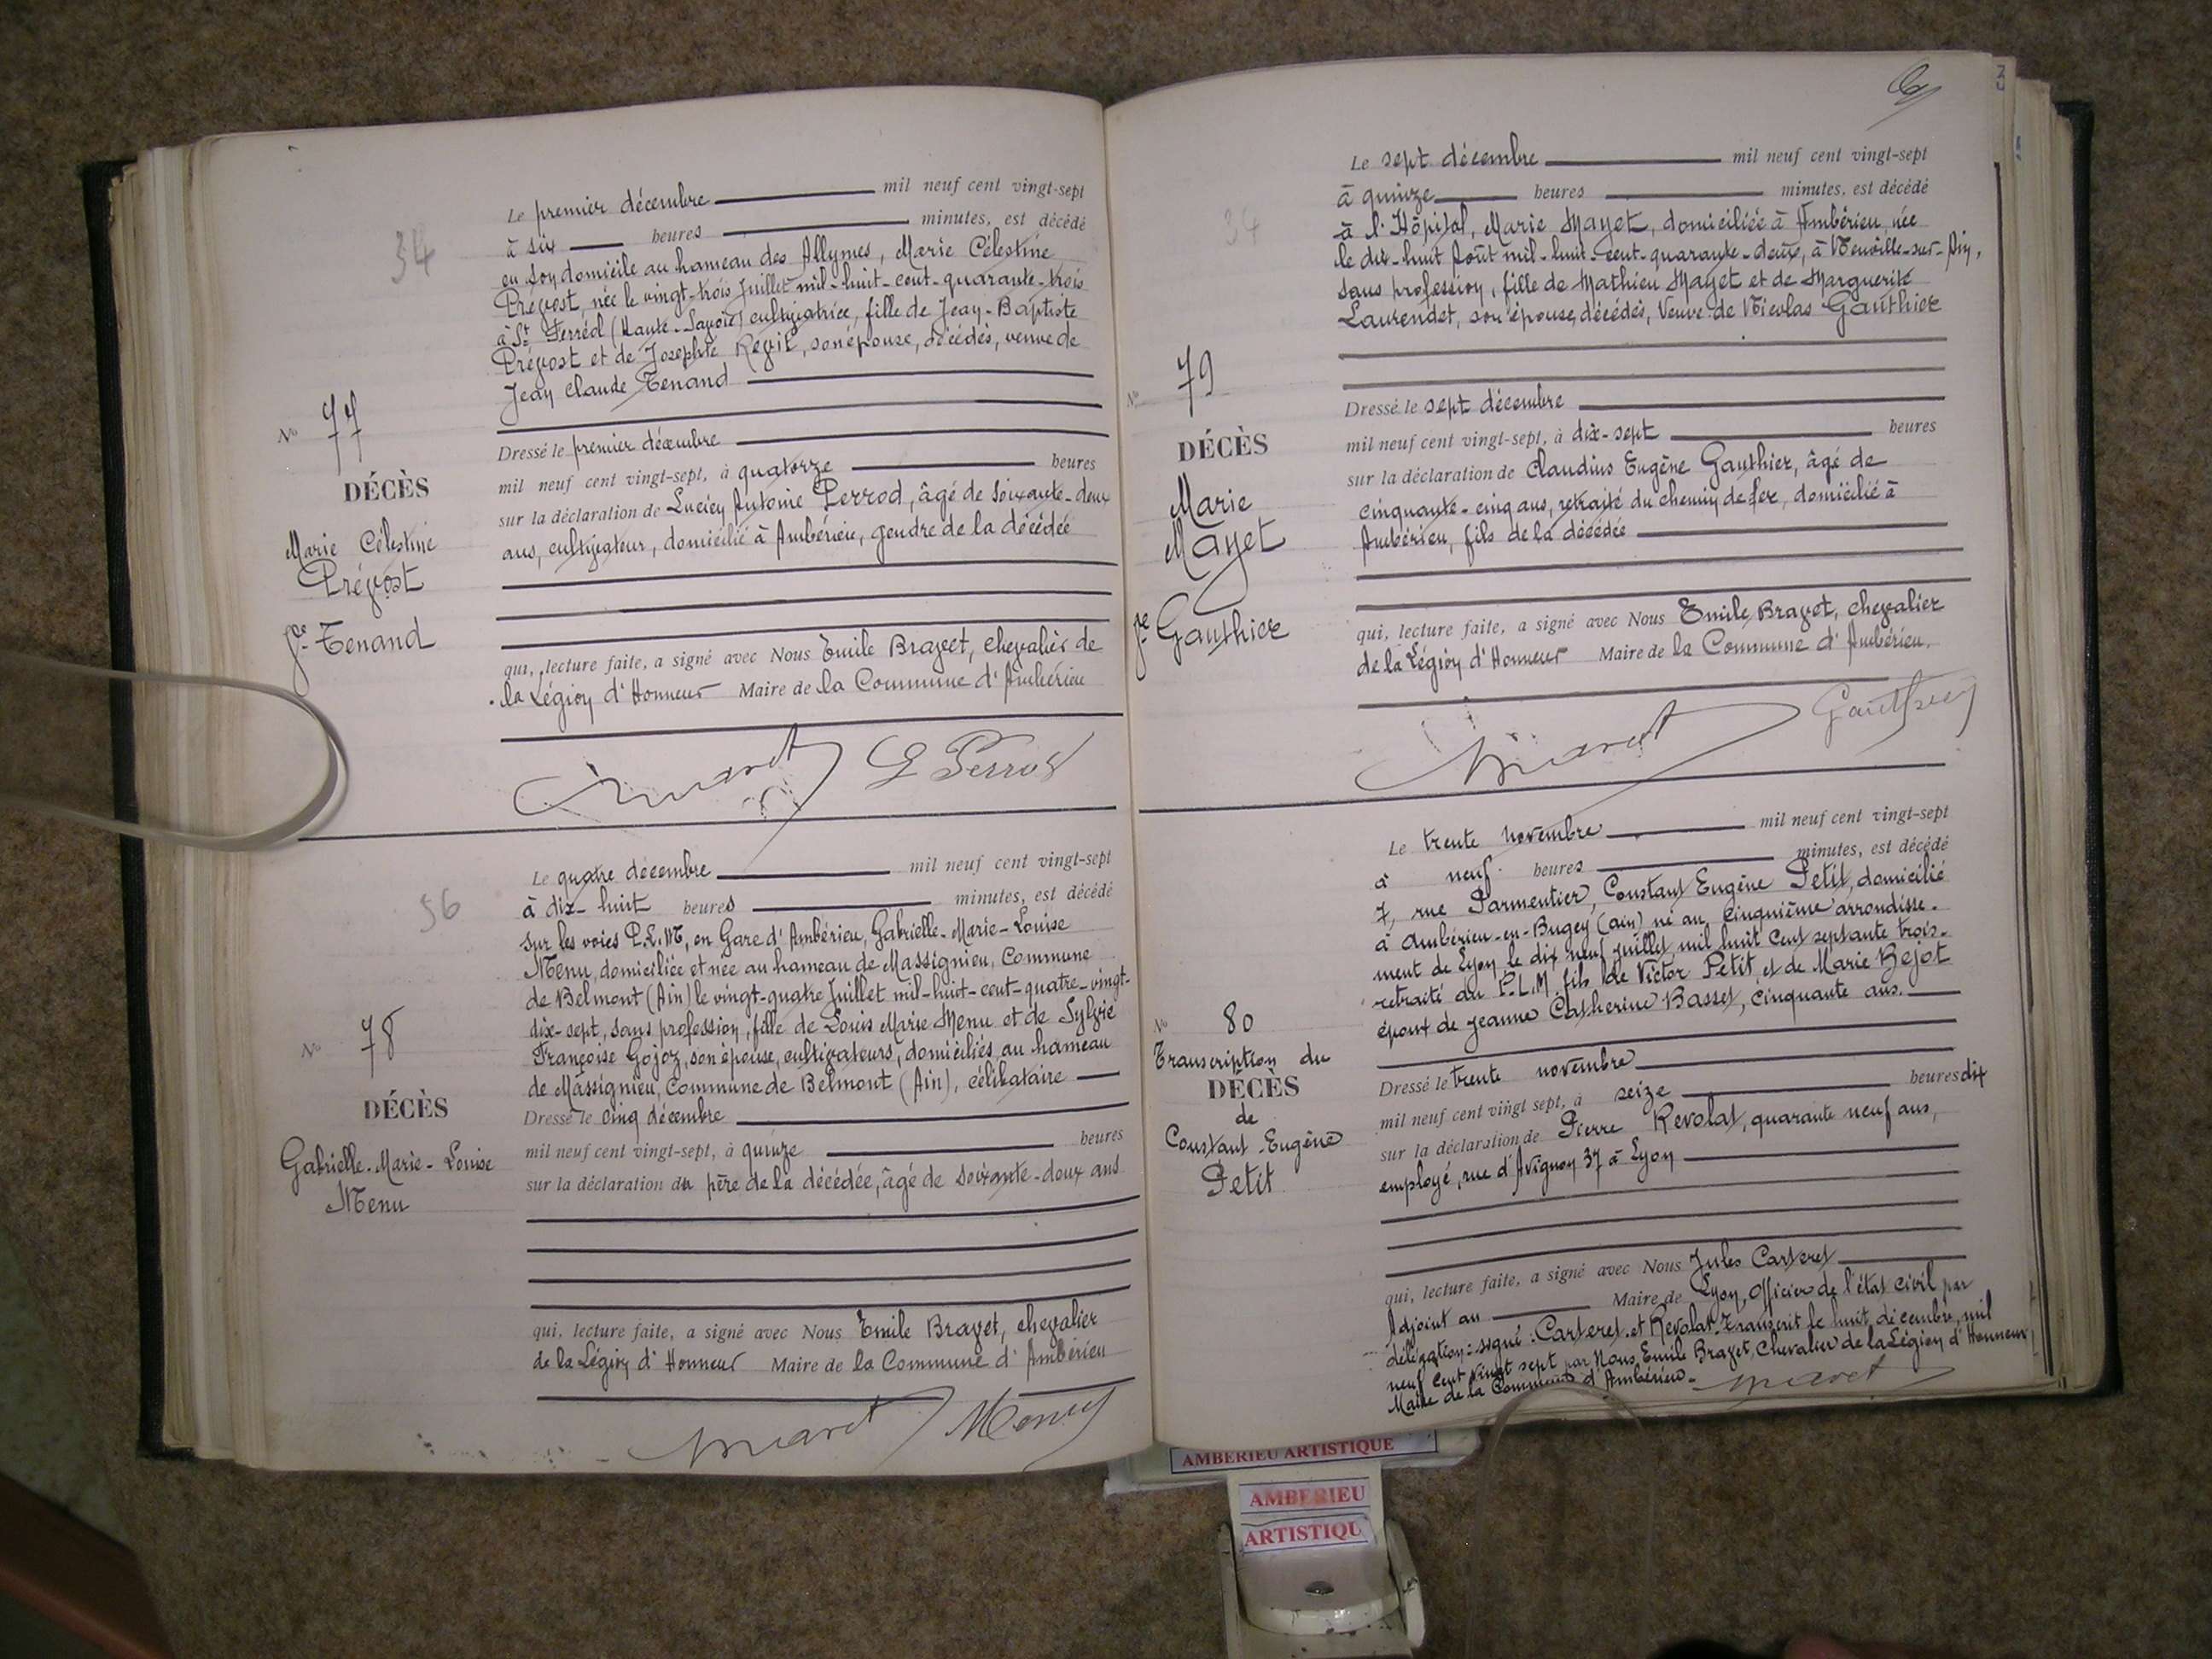 34
Le premier décembre mil neuf cent vingt-sept
à six heures minutes, est décédé
en son domicile au hameau des Allymes, Marie Célestine
Prévost, née le vingt-trois Juillet mil-huit-cent-quarante-trois
à St Ferréol (Haute-Savoie) cultivatrice, fille de Jean-Baptiste
Prévost et de Josephte Revit, son épouse, décédés, veuve de
Jean Claude Tenand
No 77
DÉCÈS
Marie Célestine
Prévost
Ve Tenand
Dressé le premier décembre
mil neuf cent vingt-sept, à quatorze heures
sur la déclaration de Lucien Antoine Perrod, âgé de soixante-deux
ans, cultivateur, domicilié à Ambérieu, gendre de la décédée
qui, lecture faite, a signé avec Nous Emile Bravet, chevalier de
la Légion d'Honneur Maire de la Commune d'Ambérieu
Perrod
56
Le quatre décembre mil neuf cent vingt-sept
à dix-huit heures minutes, est décédé
sur les voies P.L.M, en Gare d'Ambérieu, Gabrielle-Marie-Louise
Menu, domiciliée et née au hameau de Massignieu, Commune
de Belmont (Ain) le vingt-quatre Juillet mil-huit-cent-quatre-vingt-
dix-sept, sans profession, fille de Louis Marie Menu et de Sylvie
Françoise Gojoz, son épouse, cultivateurs, domiciliés au hameau
de Massignieu, Commune de Belmont (Ain), célibataire
No 78
DÉCÈS
Gabrielle-Marie-Louise
Menu
Dressé le cinq décembre
mil neuf cent vingt-sept, à quinze heures
sur la déclaration du père de la décédée, âgé de soixante-doux ans
qui, lecture faite, a signé avec Nous Emile Bravet, chevalier
de la Légion d'Honneur Maire de la Commune d'Ambérieu
Menu
34
Le sept décembre mil neuf cent vingt-sept
à quinze heures minutes, est décédé
à l'Hôpital, Marie Mayet, domiciliée à Ambérieu, née
le dix-huit Août mil-huit-cent-quarante-deux, à Neuville-sur-Ain,
sans profession, fille de Mathieu Mayet et de Marguerite
Laurendet, son épouse, décédés, Veuve de Nicolas Gauthier
No 79
DÉCÈS
Marie
Mayet
Ve Gauthier
Dressé le sept décembre
mil neuf cent vingt-sept, à dix-sept heures
sur la déclaration de Claudius Eugène Gauthier, âgé de
cinquante-cinq ans, retraité du chemin de fer, domicilié à
Ambérieu, fils de la décédée
qui, lecture faite, a signé avec Nous Emile Bravet, chevalier
de la Légion d'Honneur Maire de la Commune d'Ambérieu.
Gauthier
Le trente novembre mil neuf cent vingt-sept
à neuf heures minutes, est décédé
7, rue Parmentier, Constant Eugène Petit, domicilié
à Ambérieu-en-Bugey (ain) né au cinquième arrondisse-
ment de Lyon le dix neuf juillet mil huit cent septante trois-
retraité du P.L.M. fils de Victor Petit et de Marie Bejot
époux de Jeanne Catherine Basset, cinquante ans.
No 80
Transcription du
DÉCÈS
de
Constant Eugène
Petit
Dressé le trente novembre
mil neuf cent vingt sept, à seize heures dix
sur la déclaration de Pierre Revolat, quarante neuf ans,
employé, rue d'Avignon 37 à Lyon
qui, lecture faite, a signé avec Nous Jules Carteret
Adjoint au Maire de Lyon, Officier de l'état civil par
délégation : signé : Carteret et Revolat. Transcrit le huit décembre mil
neuf cent vingt sept par Nous, Emile Bravet, Chevalier de la Légion d'Honneur,
Maire de la Commune d'Ambérieu-
AMBERIEU ARTISTIQUE
AMBERIEU
ARTISTIQU